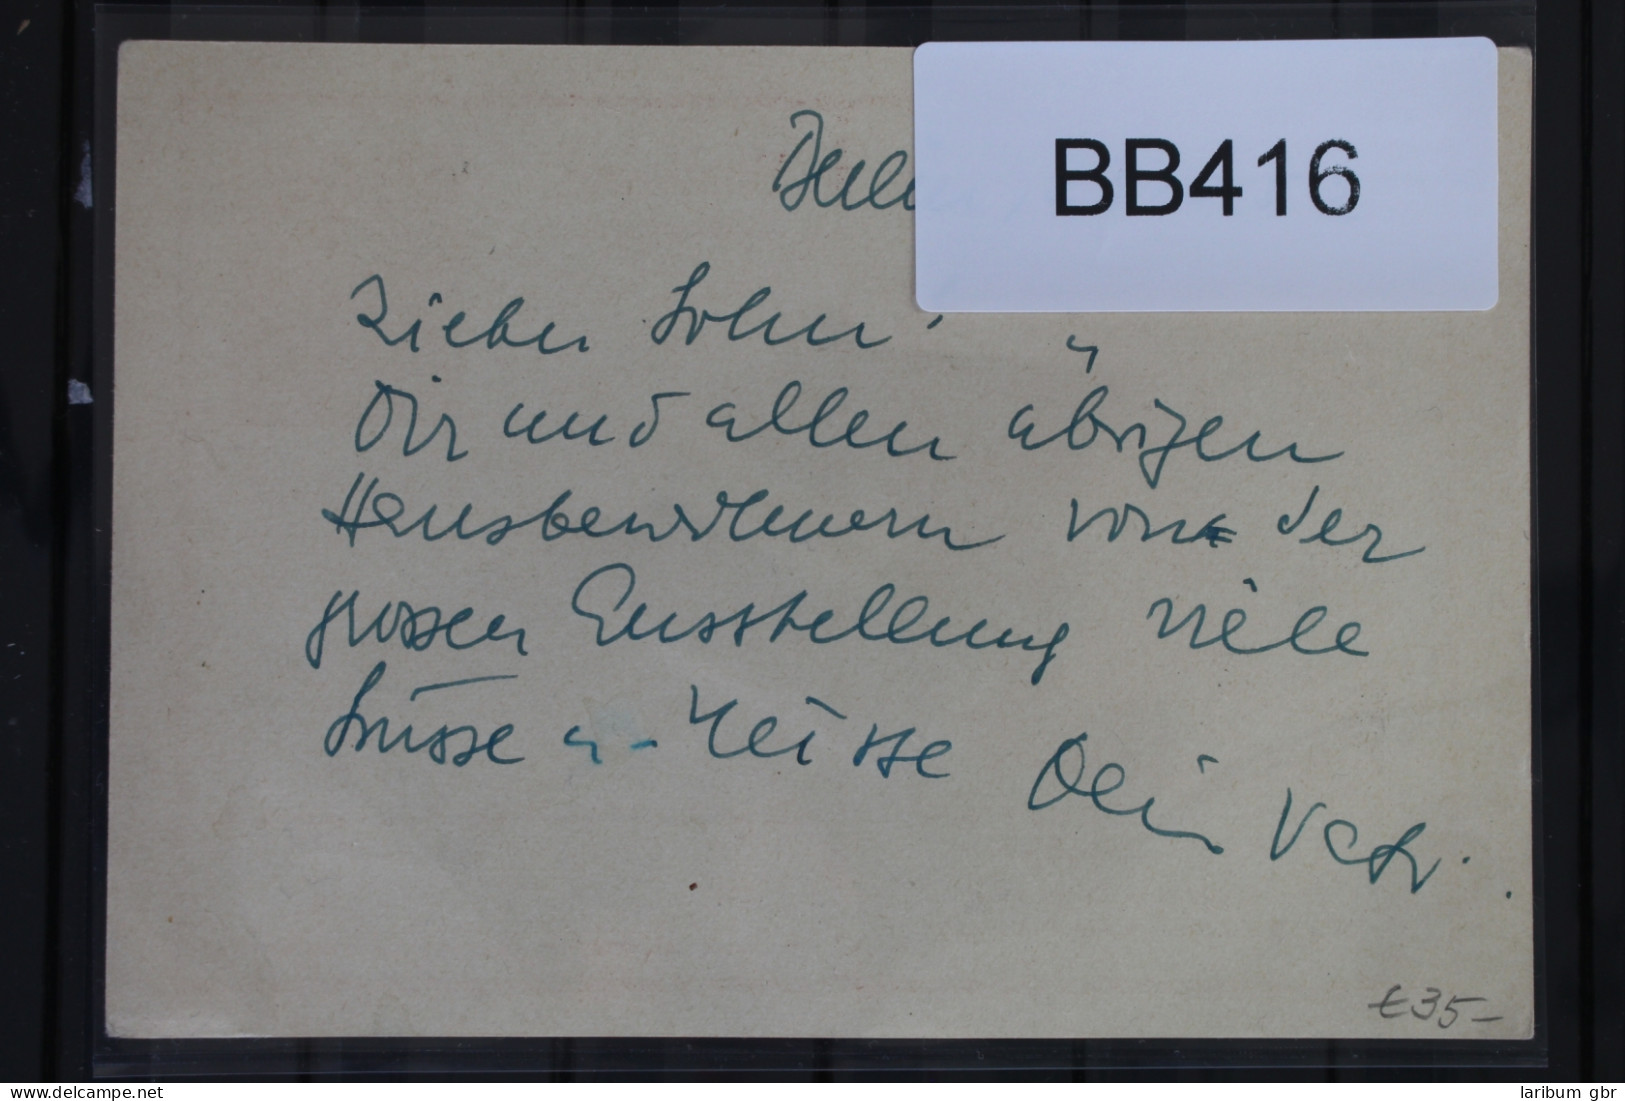 BB416
Lieber Sohn!
Dir und allen übrigen
Hausbewohnern von der
grossen Ausstellung viele
Grüsse u. Küsse Dein Vater.
€35-
delcampe.net
laribum gbr